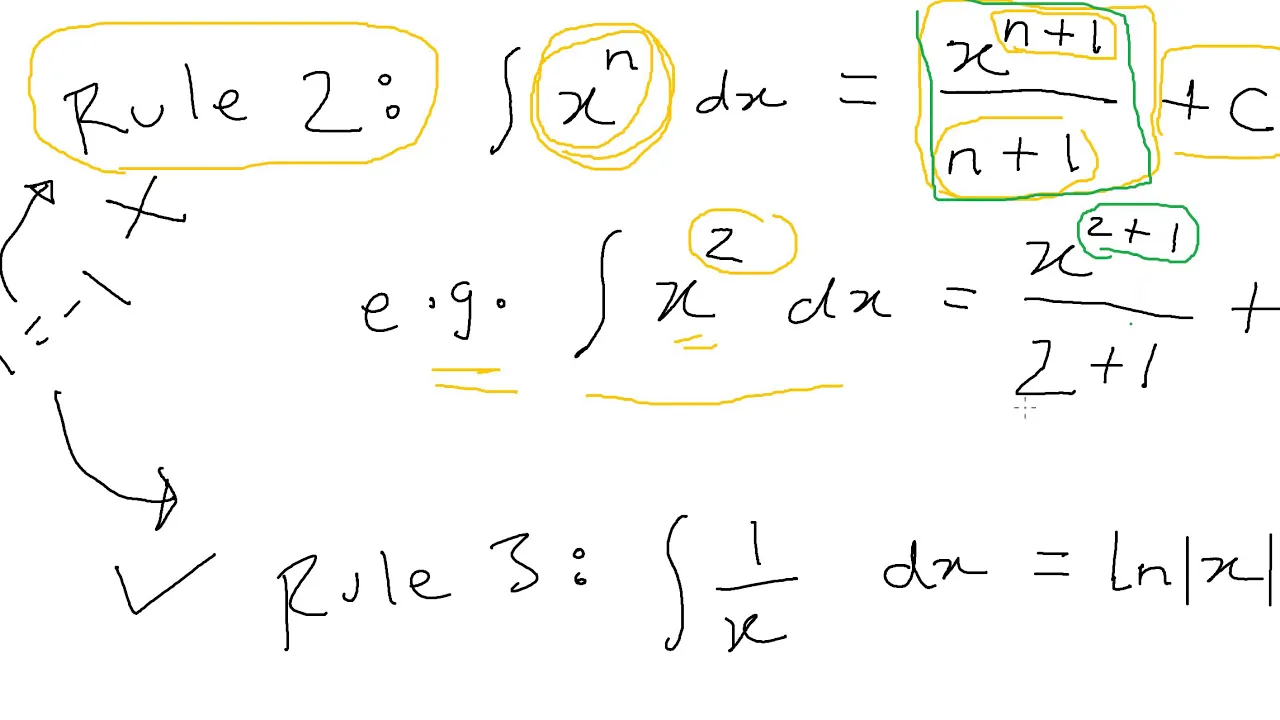 Rule 2: ∫ xⁿ dx = xⁿ⁺¹/(n+1) + C
X
e.g. ∫ x² dx = x²⁺¹/(2+1) +
✓ Rule 3: ∫ 1/x dx = ln|x|